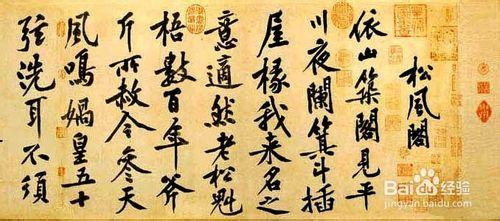 松風閣
依山築閣見平
川夜闌箕斗插
屋椽我來名之
意適然老松魁
梧數百年斧
斤所赦今參天
風鳴媧皇五十
弦洗耳不須
Baidu 经验
jingyan.baidu.com